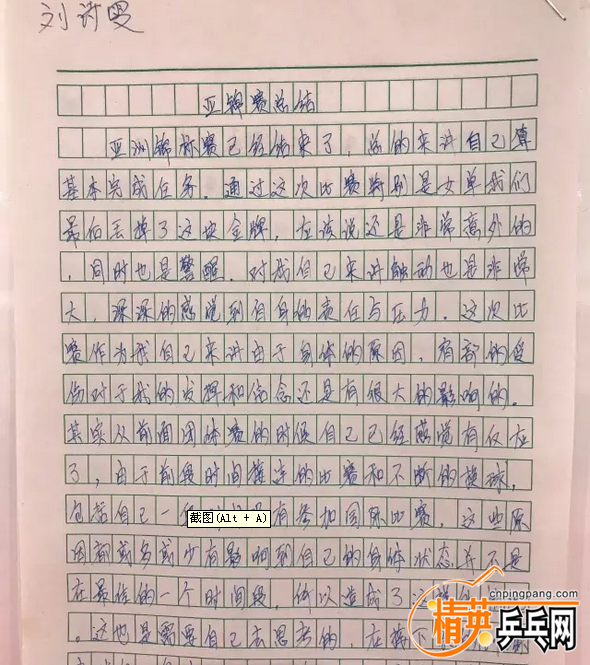 刘诗雯
亚锦赛总结
亚洲锦标赛已经结束了，总的来讲自己算
基本完成任务。通过这次比赛特别是女单我们
最后丢掉了这块金牌，应该说还是非常意外的
，同时也是警醒。对我自己来讲触动也是非常
大，深深的感觉到自身的责任与压力。这次比
赛作为我自己来讲由于身体的原因，肩部的受
伤对于我的发挥和信念还是有很大的影响的。
其实从前面团体赛的时候自己已经感觉有反应
了，由于前段时间接连的比赛和不断的换球，
包括自己一 没有参加国际比赛，这些原
截图(Alt + A)
因都或多或少有影响到自己的身体状态并不是
在最佳的一个时间段，所以造成了
。这也是需要自己去思考的，在接下
cnpingpang.com
精英乒乓网